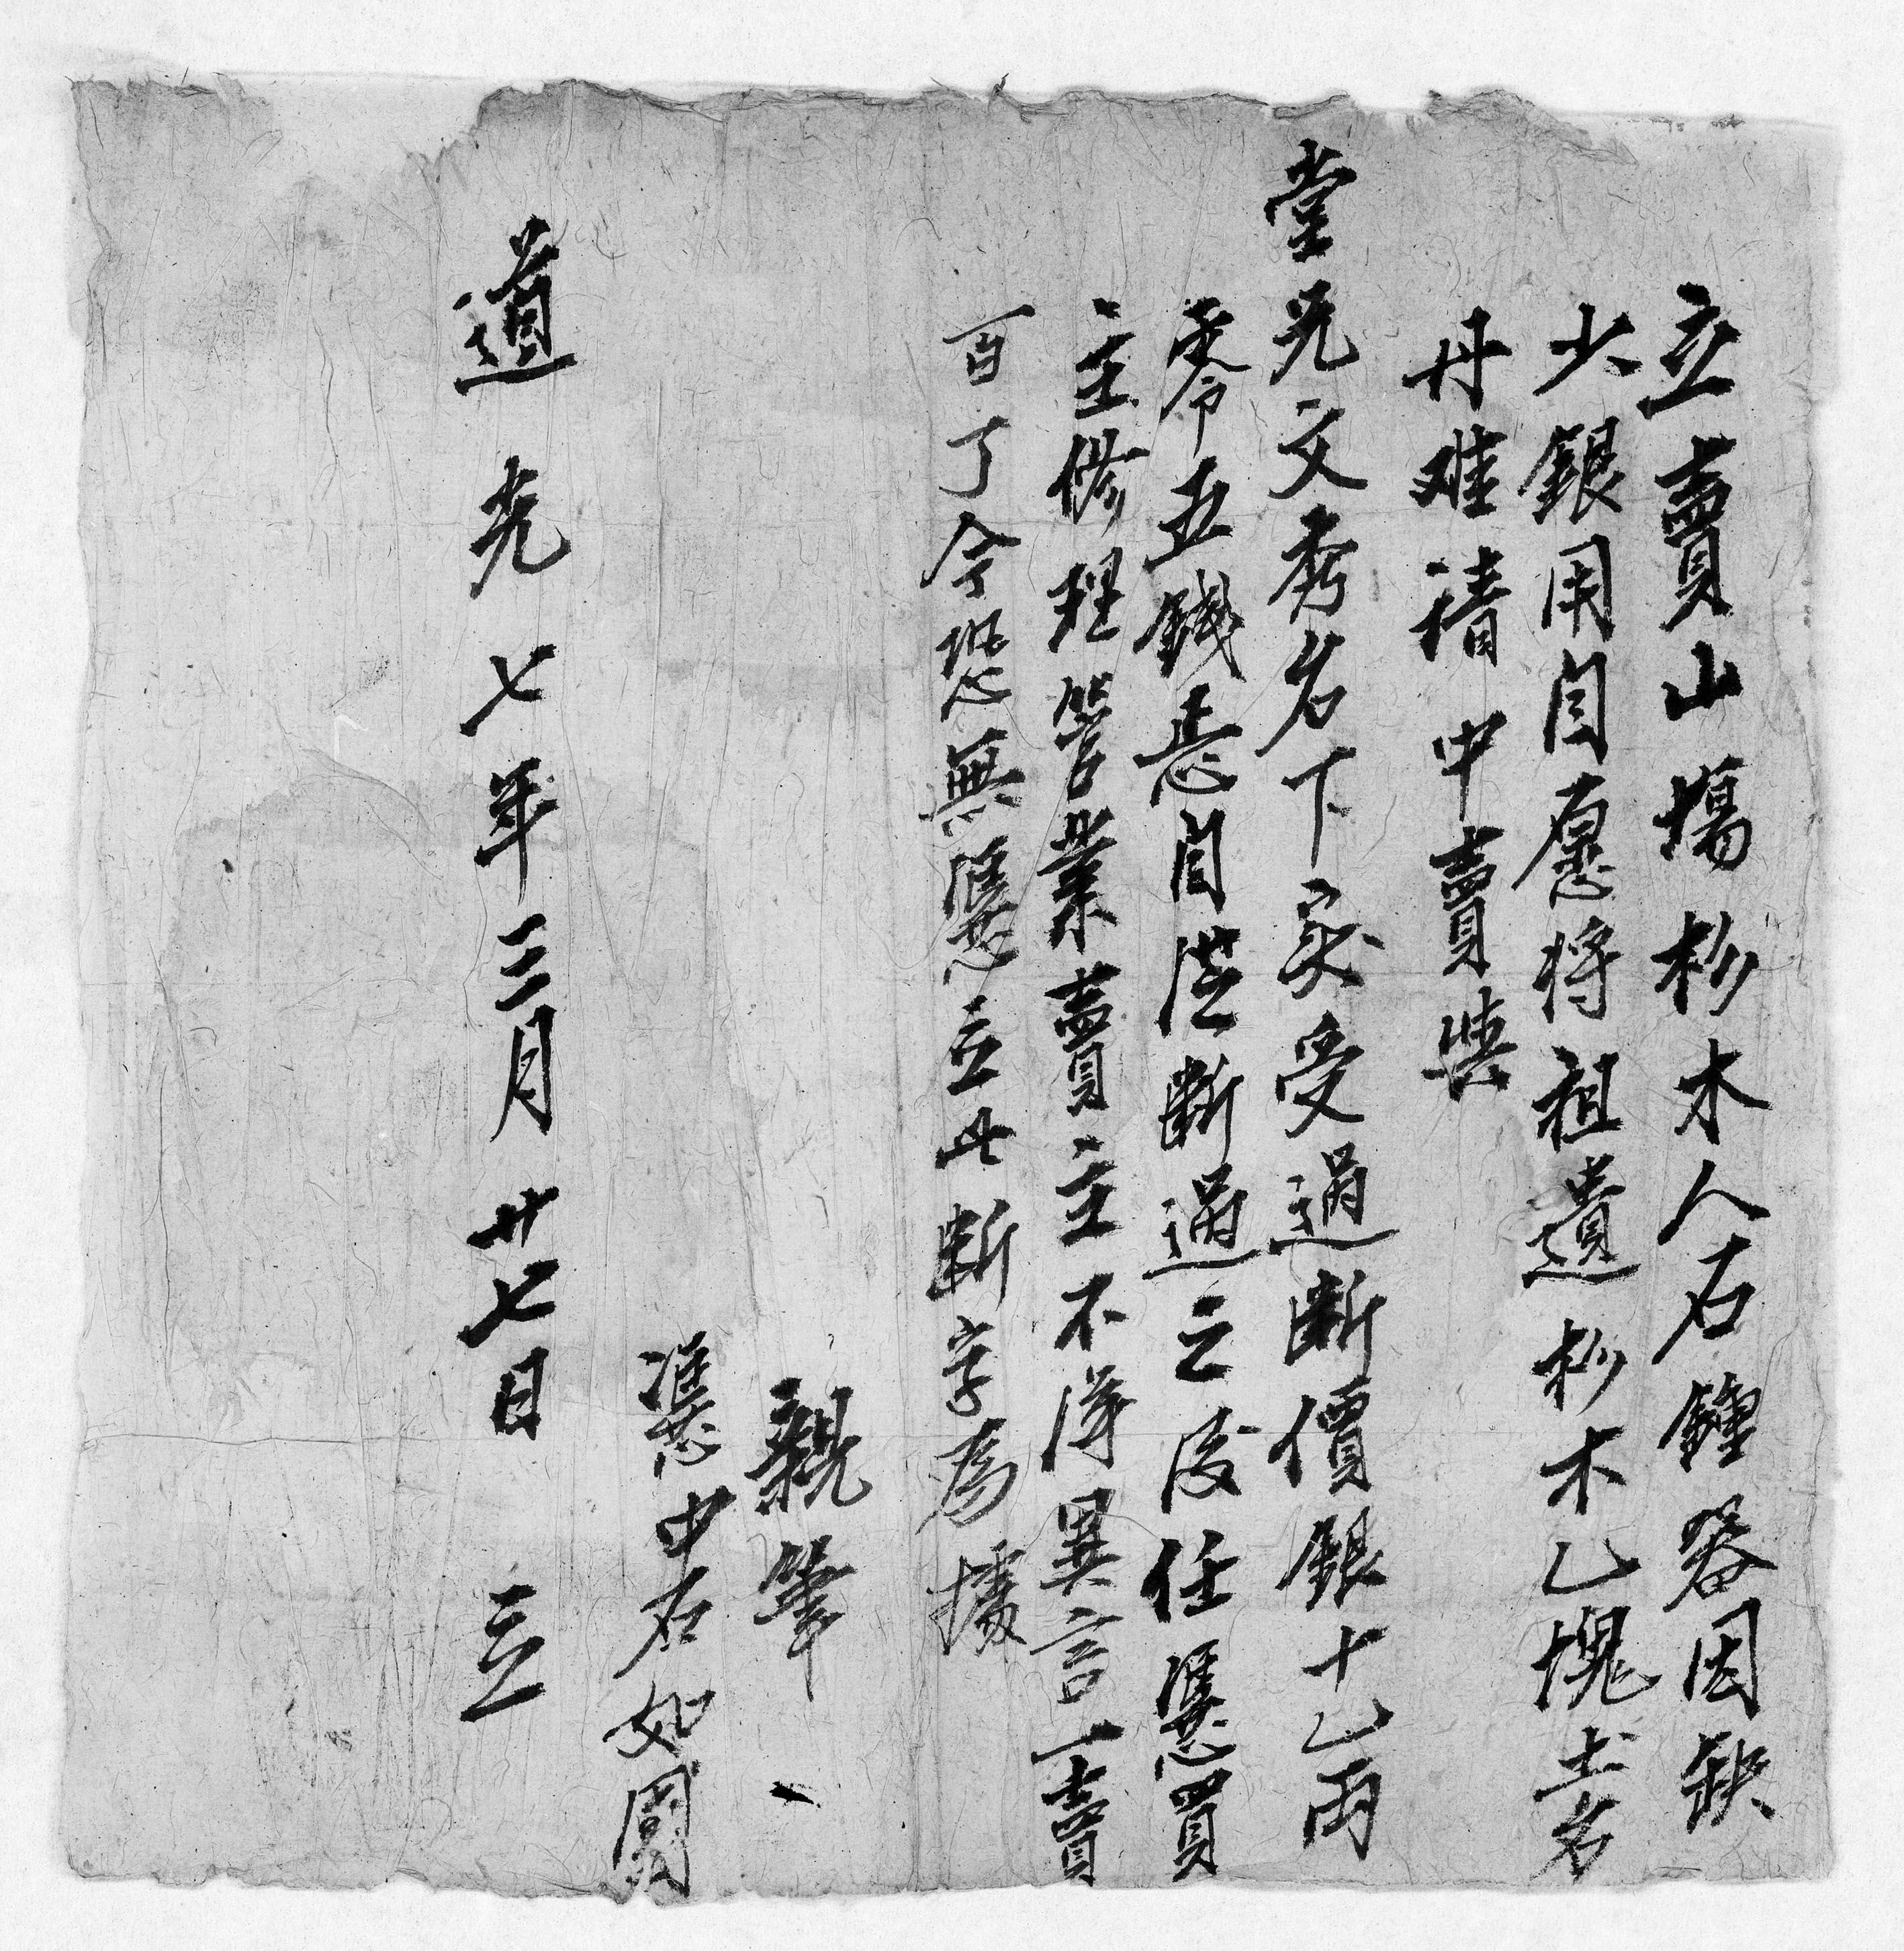 立賣山塲杉木人石鍾器因缺
少銀用自愿将祖遺杉木乙塊土名
丹难請中賣與
堂兄文秀名下实受過断價銀十乙両
零五錢悉自從断過之后任憑買
主修理管業賣主不淂異言一賣
百了今恐無憑立此断字為據
親筆
憑中石如周
道光七年三月廿七日 立